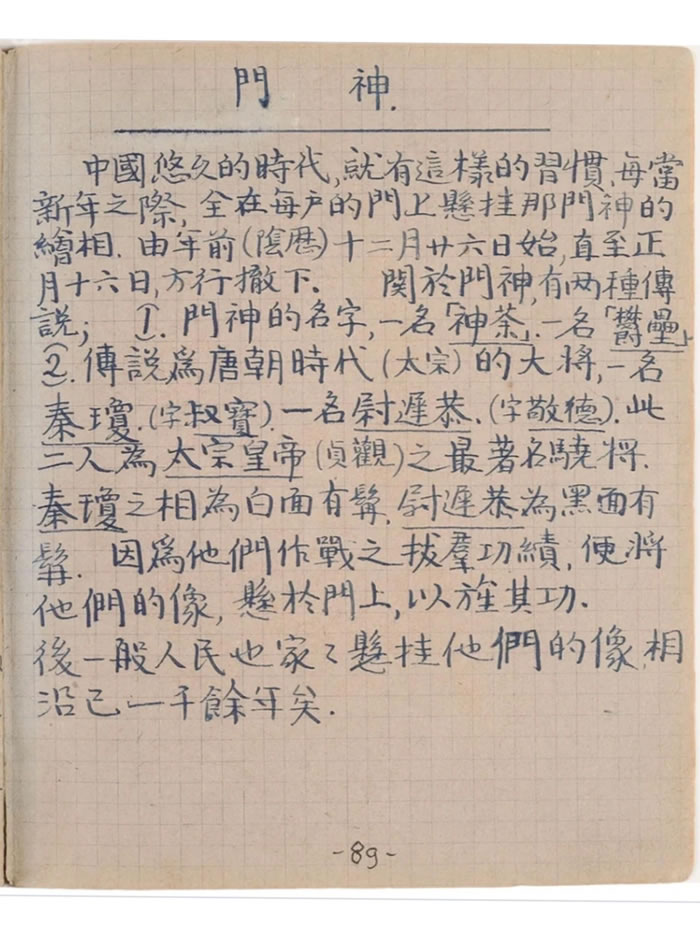 門 神.
中國悠久的時代,就有這樣的習慣,每當
新年之際,全在每户的門上懸挂那門神的
繪相. 由年前(陰厯)十二月廿六日始,直至正
月十六日,方行撤下. 関於門神,有两種傳
説; 1. 門神的名字,一名「神荼」.一名「欝壘」
2. 傳説爲唐朝時代(太宗)的大将,一名
秦瓊.(字叔寳).一名尉遲恭.(字敬德).此
二人為太宗皇帝(貞觀)之最著名驍将.
秦瓊之相為白面有髯,尉遲恭為黑面有
髯. 因爲他們作戰之拔羣功績,便将
他們的像,懸於門上,以旌其功.
後一般人民也家〻懸挂他們的像,相
沿已一千餘年矣.
-89-